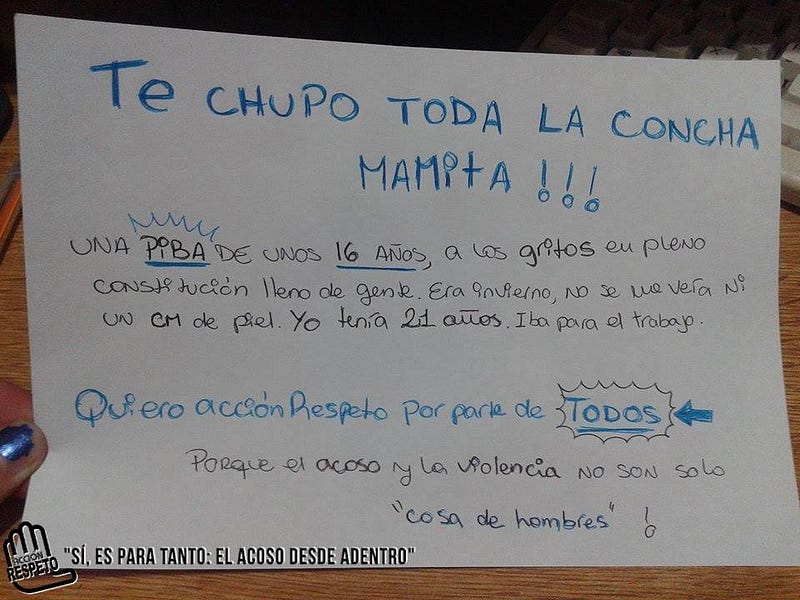 Te CHUPO TODA LA CONCHA
MAMITA !!!
UNA PIBA DE UNOS 16 AÑOS, a los gritos en pleno
constitución lleno de gente. Era invierno, no se me veía ni
UN CM de piel. Yo tenía 21 años. Iba para el trabajo.
Quiero acción Respeto por parte de TODOS
Porque el acoso y la violencia no son solo
"cosa de hombres" !
ACCIÓN
RESPETO
"SÍ, ES PARA TANTO: EL ACOSO DESDE ADENTRO"